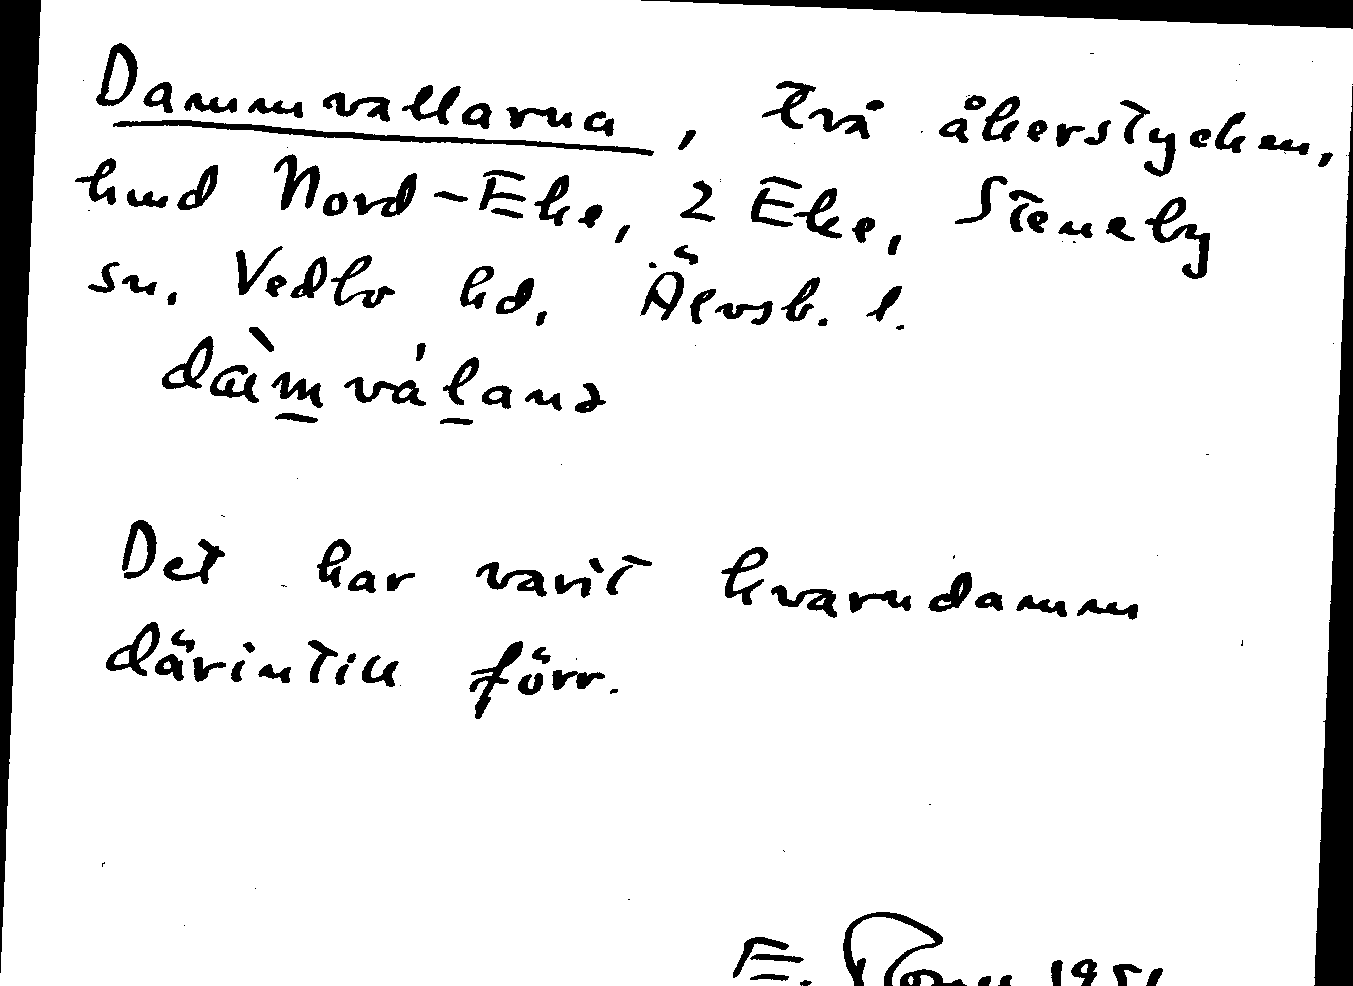 Dammvallarna, två åkerstycken,
hmd Nord-Eke, 2 Eke, Steneby
sn, Vedbo hd, Älvsb. l.
Det har varit kvarndamm
därintill förr.
E.